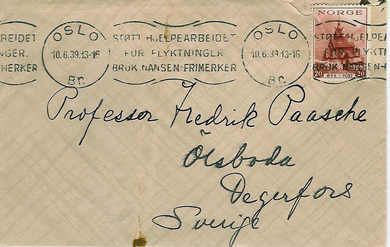 OSLO
10.6.39.13-16
Br.
STØTT HJELPEARBEIDET
FOR FLYKTNINGER.
BRUK NANSEN-FRIMERKER
OSLO
10.6.39.13-16
Br.
NORGE
20 20
Professor Fredrik Paasche
Ölsboda
Degerfors
Sverige